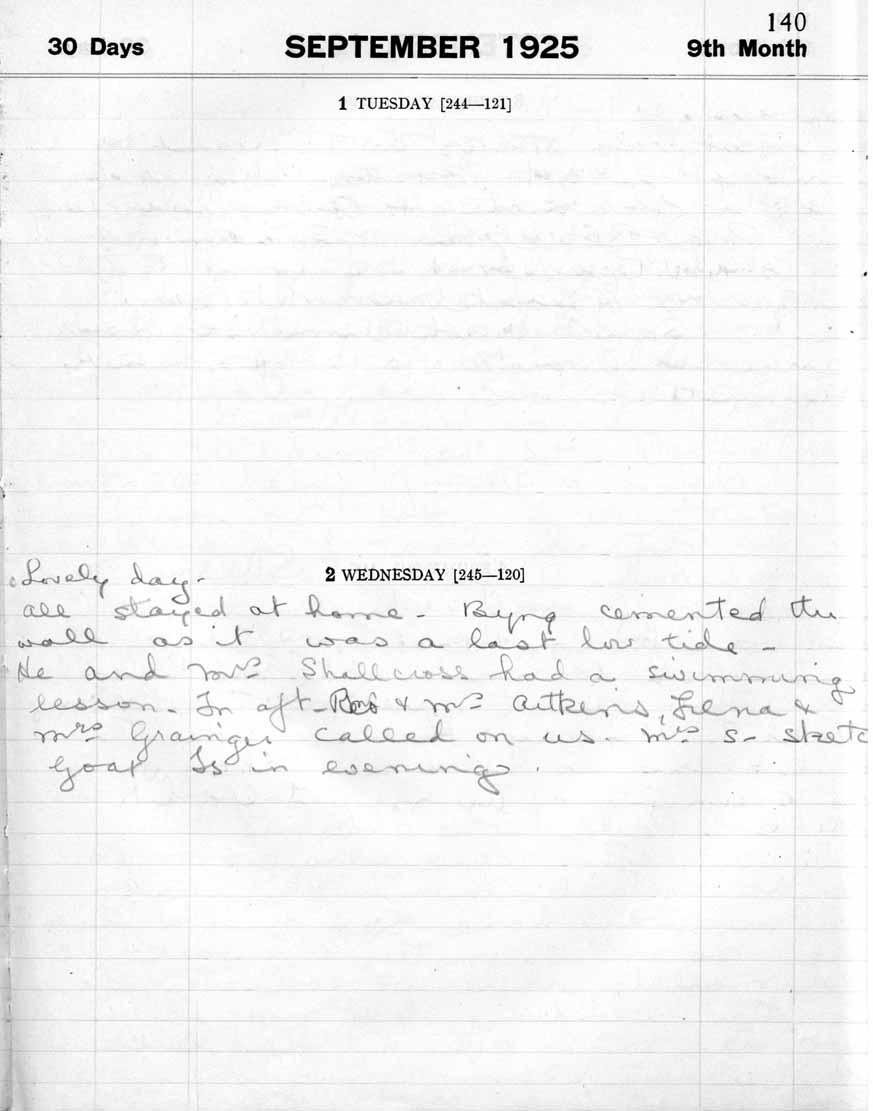 140
30 Days SEPTEMBER 1925 9th Month
1 TUESDAY [244—121]
2 WEDNESDAY [245—120]
Lovely day-
all stayed at home - Byng cemented the
wall as it was a last low tide -
He and Mrs Shallcross had a swimming
lesson - In aft - & Mrs Aitkens, Lena &
Mrs Grainger called on us. Mrs S- sketc
Goat Is in evening.